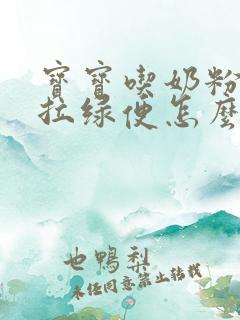 寶寶喫奶粉
拉綠便怎麼
也鴨梨
未经同意禁止转载